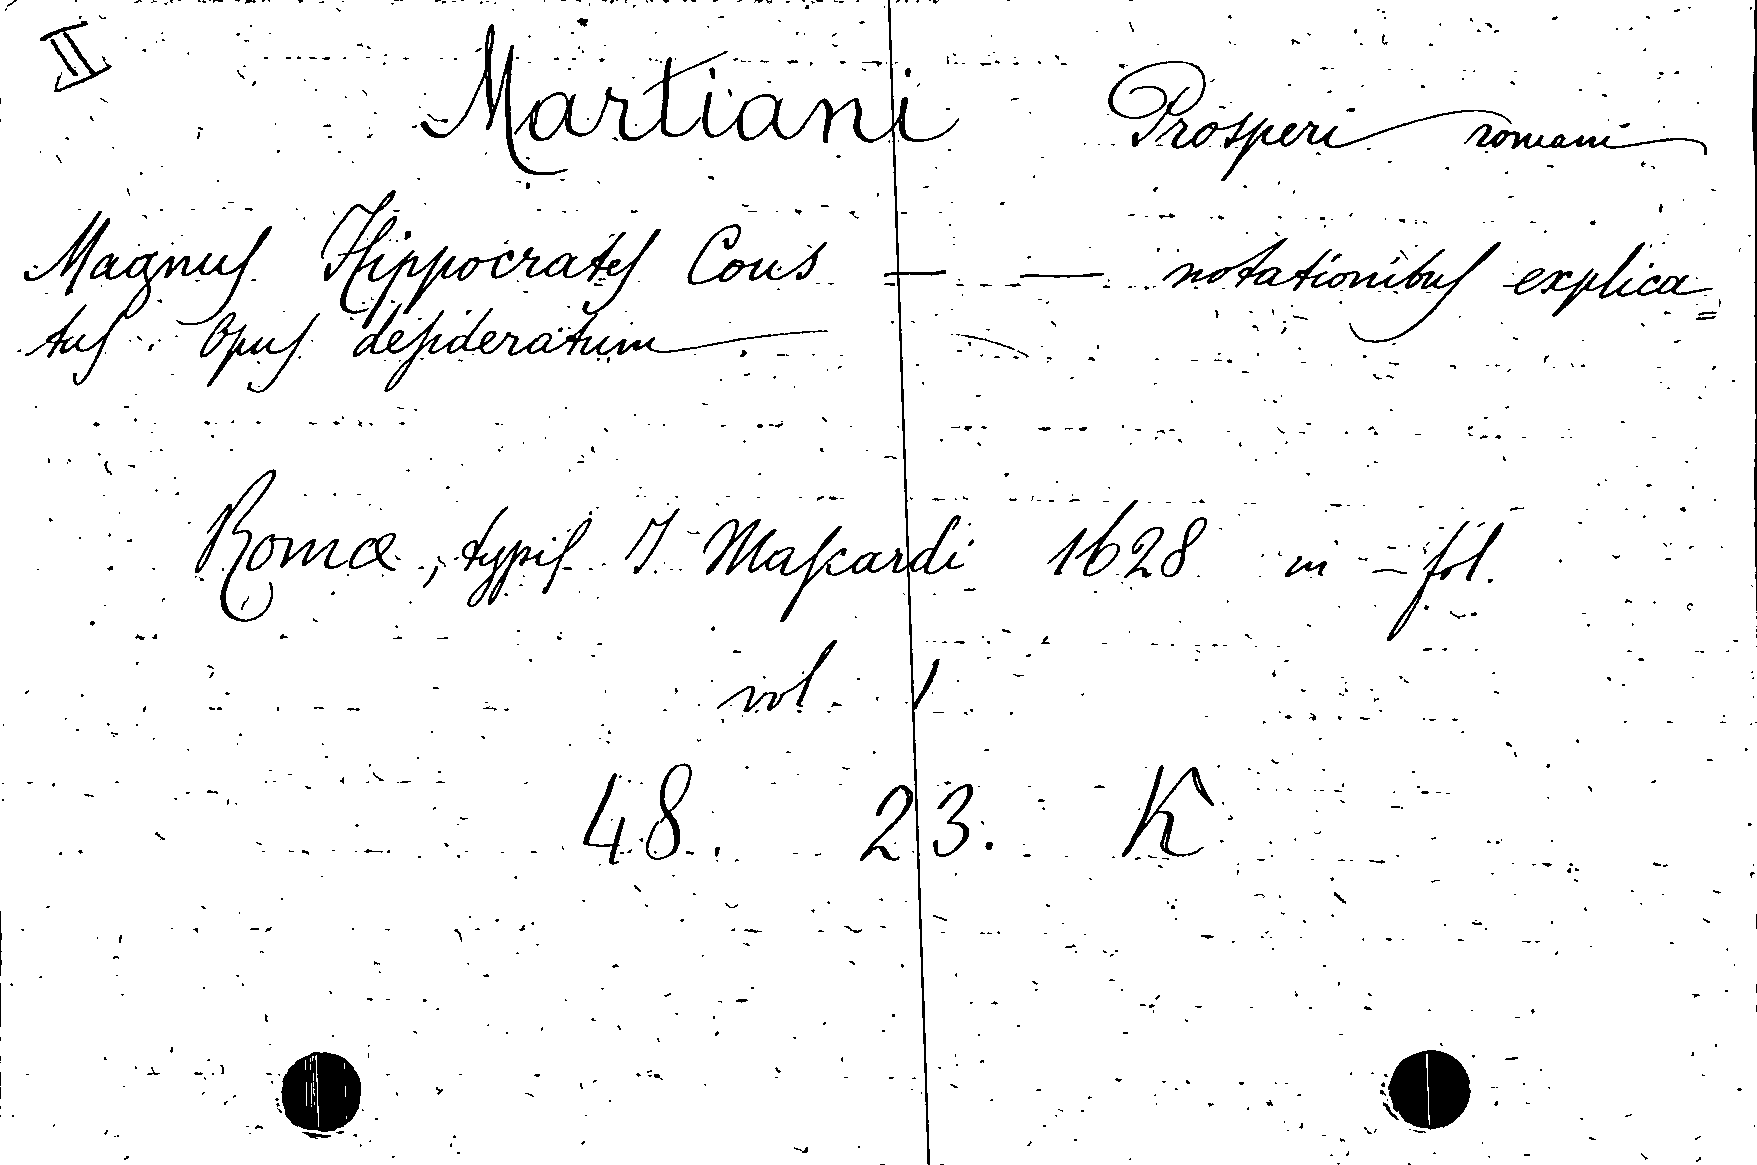 II
Martiani Prosperi romani
Magnus Hippocrates Cous — — notationibus explica=
tus. Opus desideratum
Romæ, typis I Mascardi 1628 in-fol.
vol 1
48. 23. K